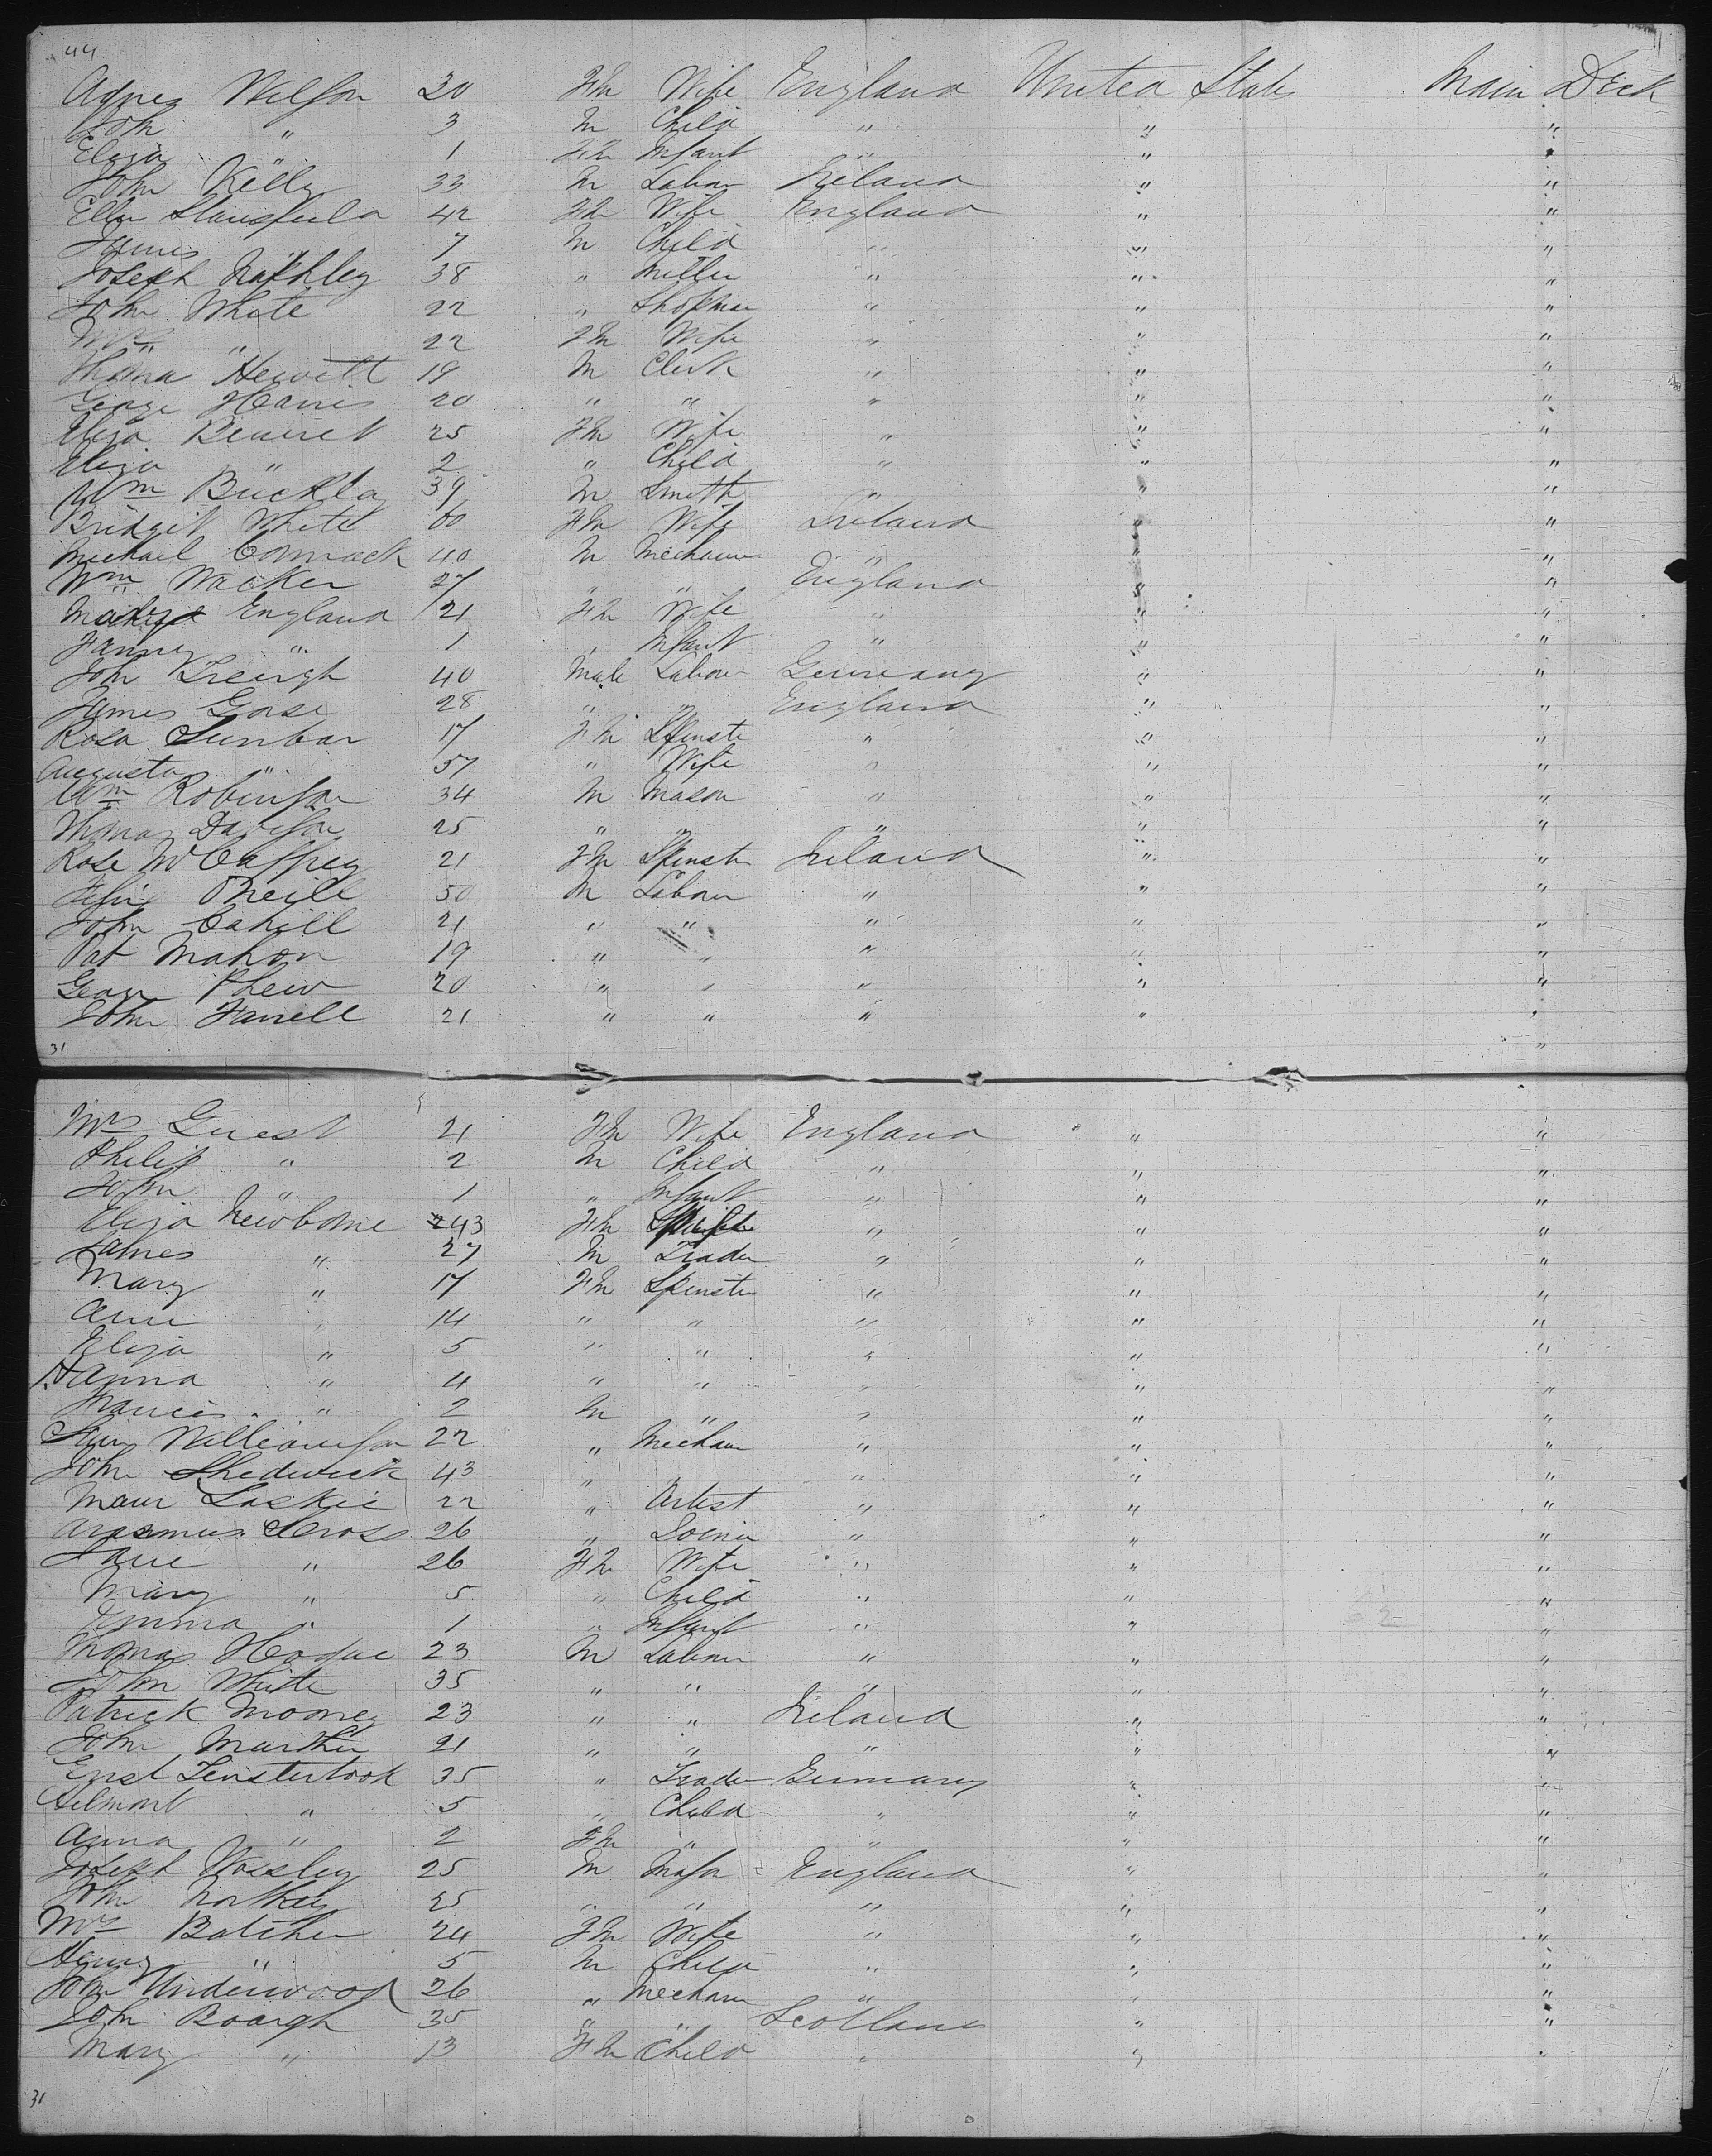 44
Agnes Wilson 30 Fm Wife England United States Main Deck
John " 3 M Child " " "
Eliza " 1 Fm Infant " " "
John Kelly 33 M Labour Ireland " "
Ellen Stansfield 42 Fm Wife England " "
James " 7 M Child " " "
Joseph 38 " Miller " " "
John White 22 " Shopman " " "
Mrs " 22 Fm Wife " " "
Thoma Hewitt 19 M Clerk " " "
George Harris 20 " " " " "
Eliza Bennet 25 Fm Wife " " "
Eliza " 2 " Child " " "
Wm Buckley 39 M Smith " " "
Bridgit White 60 Fm Wife Ireland " "
Michael Cormack 40 M Mechanic " " "
Wm Wacker 27 " " England " "
England 21 Fm Wife " " "
Fanny " 1 " Infant " " "
John 40 Male Labour Germany " "
James Gorse 28 " " England " "
Rosa Sunbar 17 Fm Spinste " " "
Augusta " 57 " Wife " " "
Wm Robinson 34 M Mason " " "
Thomas Davison 25 " " " " "
Rose McCaffrey 21 Fm Spinste Ireland " "
Felix O'Neill 50 M Labour " " "
John Cahill 21 " " " " "
Pat Mahon 19 " " " " "
20 " " " " "
John Farrell 21 " " " " "
31 "
Mrs Guest 21 Fm Wife England " "
Philip " 2 M Child " " "
John " 1 " Infant " " "
Eliza Newborne 43 Fm " " "
James " 27 M Trader " " "
Mary " 17 Fm Spinste " " "
Ann " 14 " " " " "
Eliza " 5 " " " " "
Hanna " 4 " " " " "
Francis " 2 M " " " "
Williamson 22 " Mechan " " "
John Shedwick 43 " " " "
Laskie 22 " Artist " " "
Arasmus Cross 26 " " " "
Jane " 26 Fm Wife " " "
Mary " 5 " Child " " "
Emma " 1 " Infant " " "
Thomas Hogue 23 M Labour " " "
John White 35 " " " " "
Patrick Mooney 23 " " Ireland " "
John 21 " " " " "
Ernst Fensterbook 35 " Trader Germany " "
Helmont " 5 " Child " " "
Anna " 2 Fm " " " "
Joseph Wossley 25 M Mason England " "
John 25 " " " " "
Mrs Batcher 24 Fm Wife " " "
Henry " 5 M Child " " "
John Underwood 26 " Mechan " " "
John Boargh 35 " " Scotland " "
Mary " 13 Fm Child " " "
31